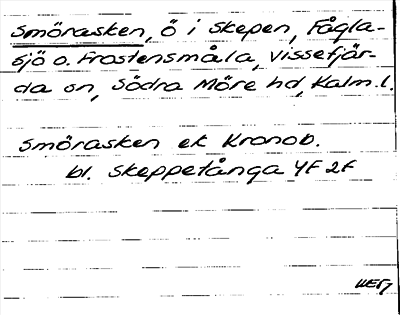 Smörasken, ö i Skepen, Fågla-
sjö o. Frostensmåla, Vissefjär-
da sn, Södra Möre hd, Kalm.l.
Smörasken ek Kronob.
bl. Skeppetånga 4F 2f